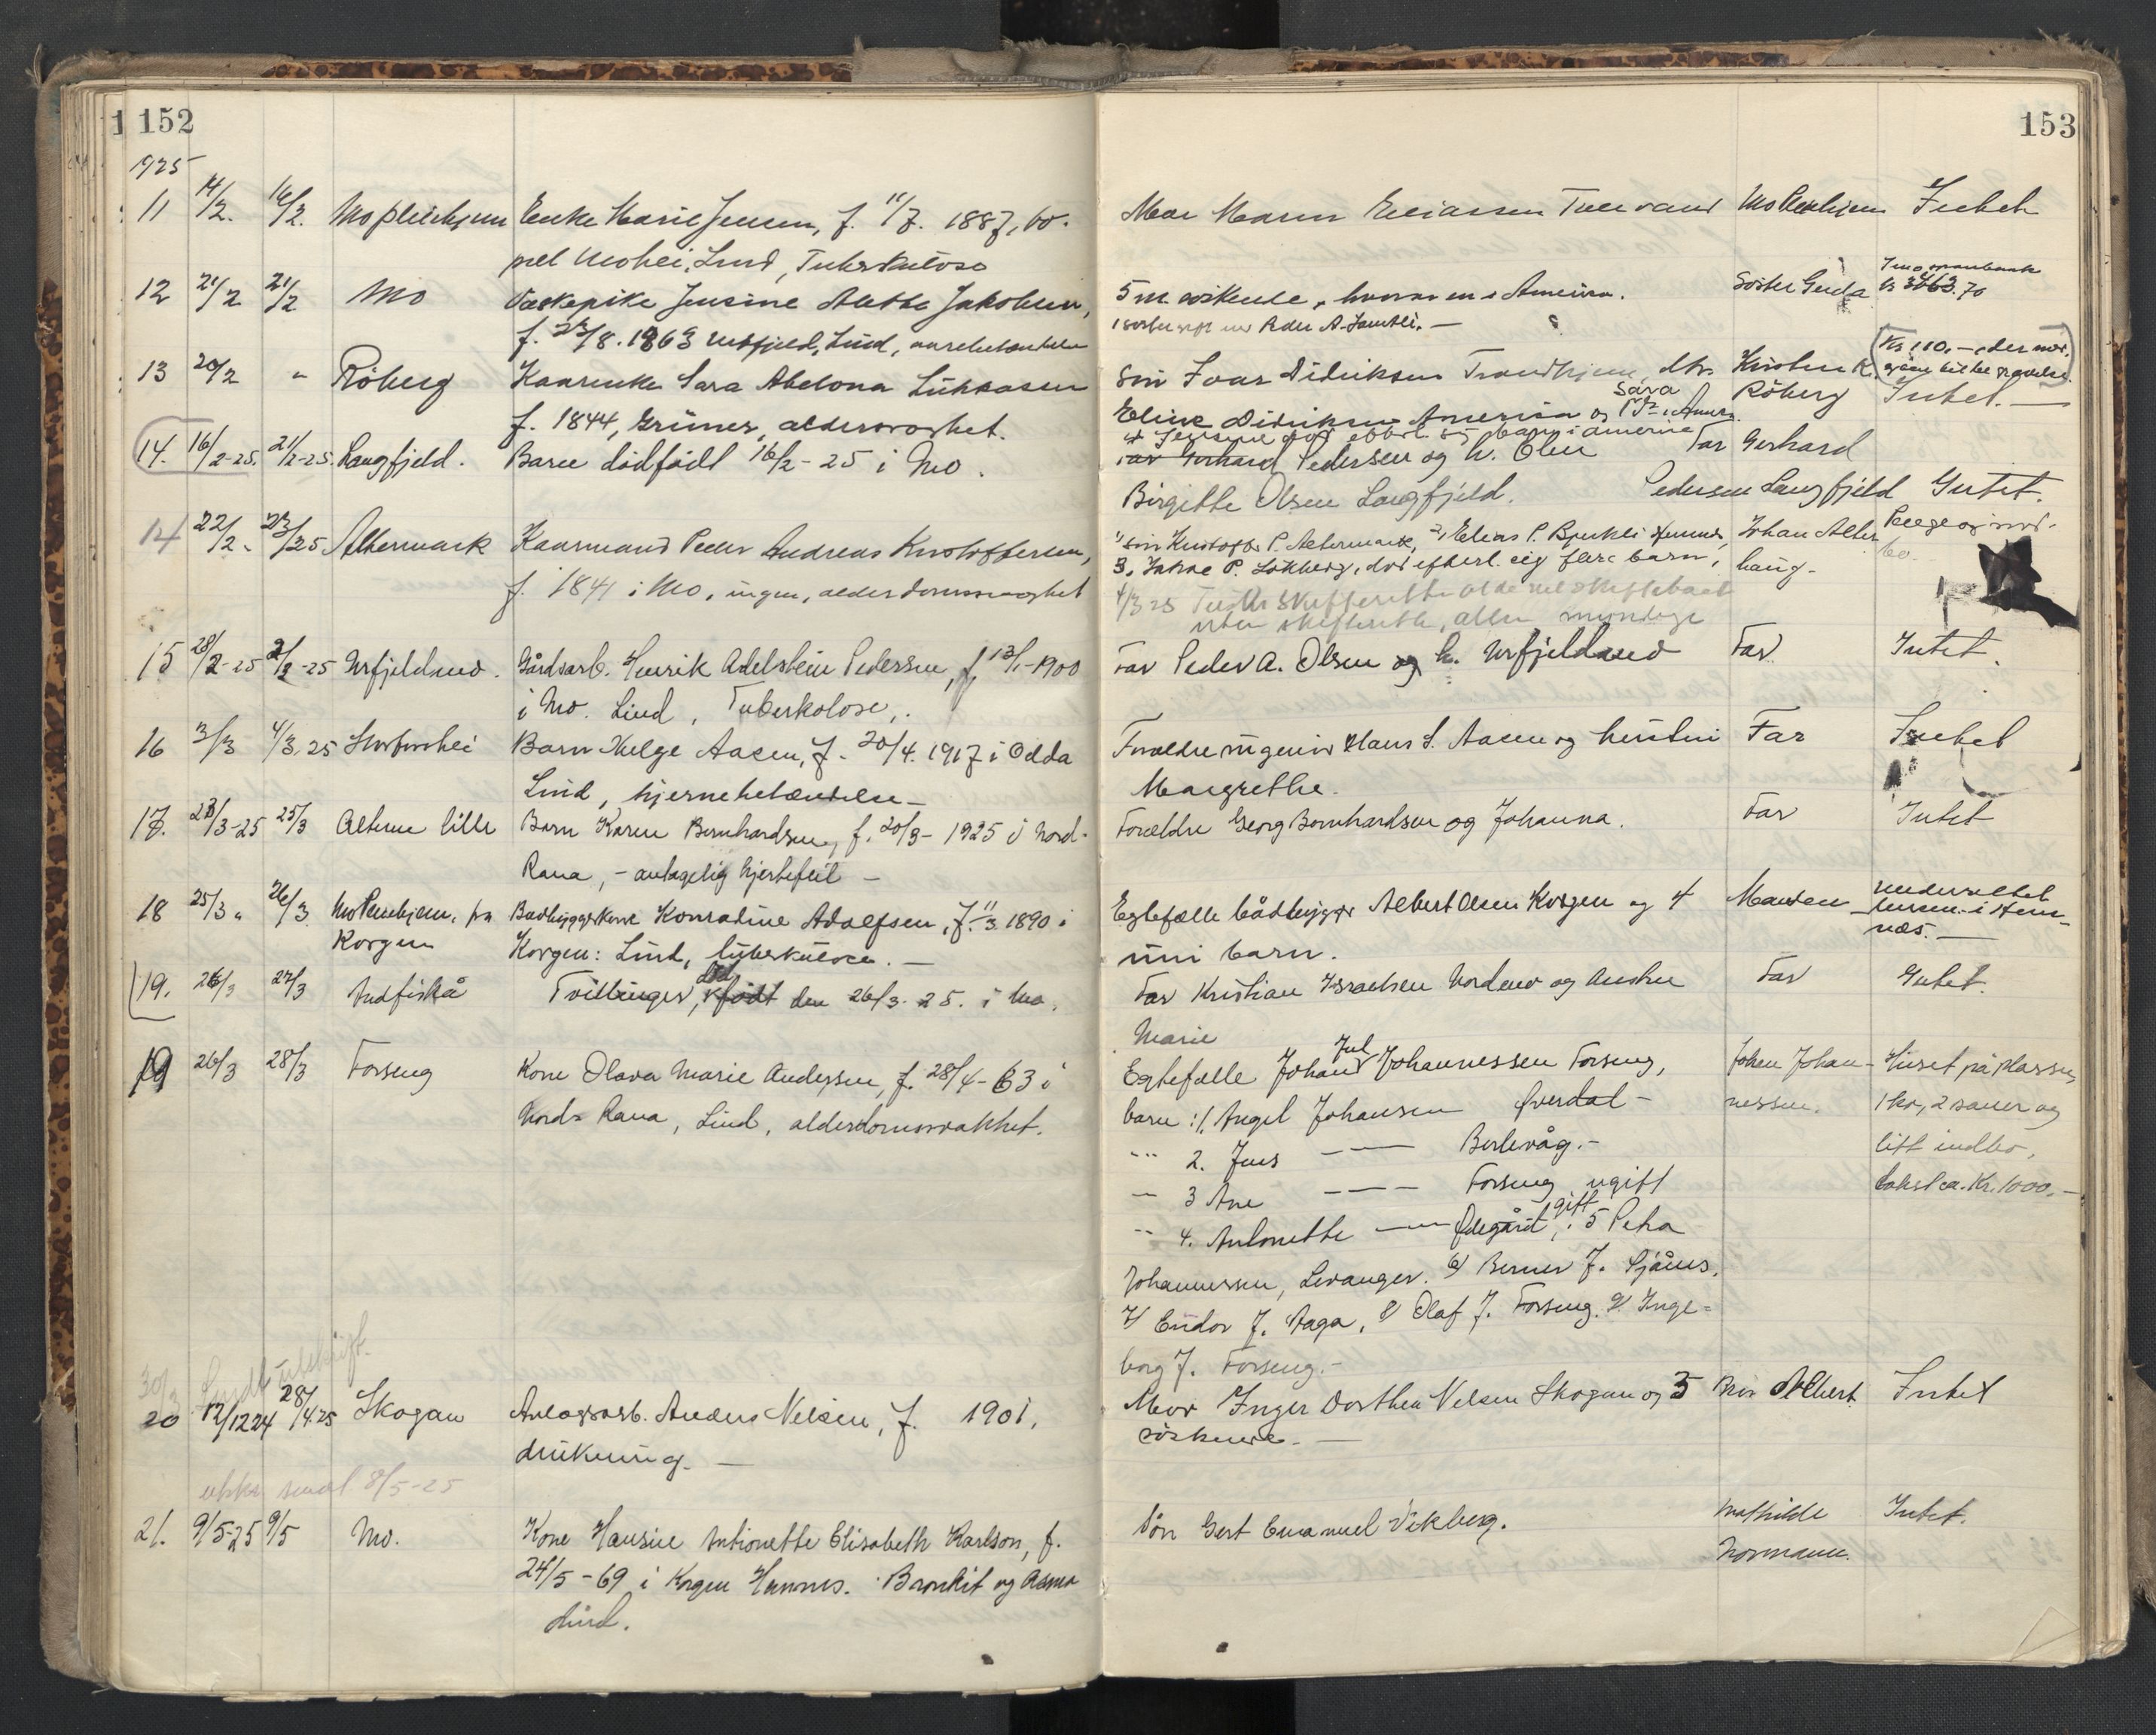 152
1925
11 14/2. 16/2. Mo pleiehjem Enke Marie Jensen, f. 11/7. 1887, bo-
pel Mohei, Lund, Tuberkulose
12 21/2 21/2 Mo Vaskepike Jensine Jakobsen,
f. 23/8. 1863 Lund,
13 20/2 " Röberg Kaarenke Sara Abelona Lukassen
f. 1844, Grüner, aldersvaghet.
14. 16/2-25. 21/2-25. Langfjeld. Barn dödfödt 16/2-25 i Mo.
14 22/2. 23/2 25 Altermark Kaarmand Peder Andreas Kristoffersen,
f. 1841 i Mo, ingen, alderdomssvaghet
15 28/2-25 2/3-25 Urfjeldmo. Gårdsarb. Henrik Adelstein Pedersen, f. 13/1-1900
i Mo. Lind, Tuberkolose,.
16 3/3 4/3.25 Storforshei Barn Helge Aasen, f. 20/4. 1917 i Odda
Lind, hjernebetændelse –
17. 23/3-25 25/3 Alteren lille Barn Karen Bernhardsen, f. 20/3-1925 i Nord-
Rana, – antagelig hjertefeil –
18 25/3 " 26/3 Mo Pleiehjem. fra Baadbyggerkone Konradine Adolfsen, f. 11/3. 1890 i
Korgen Korgen: Lind, tuberkulose. –
19. 26/3 27/3 Andfiskå Tvillinger, död födt den 26/3-25. i Mo.
19 26/3 28/3 Forseng Kone Olava Marie Andersen, f. 28/4-63 i
Nord-Rana, Lind, alderdomssvakhet.
30/3 Sendt utskrift.
20 12/12 24 28/4.25 Skogan Anlægsarb. Anders Nilsen, f. 1901,
drukning. –
utskr. sendt 8/5-25
21. 9/5-25 9/5 Mo. Kone Hansine Antionette Elisabeth Karlson, f.
24/5-69 i Korgen Hemnes. Bronkit og Asma
Lind.
153
Mor Maren Eliassen Mo Pleiehjem Intet
5 m söskende, hvorav en i Amerika. Söster Gerda kr 3763.70
Peder A. Jamtli. –
Kr 110,– eder
Sön Ivar Didriksen Trondhjem, dtr. Kirsten K.
Eline Didriksen Amerika og Sara Röberg Intet. –
far Gerhard Pedersen og h. Olen Far Gerhard
Birgitte Olsen Langfjeld. Pedersen Langfjeld Intet.
1) sön Kristoffer P. Altermark, 2) Elias P. Bjerkli Hemnes, Johan Alter- Penge og ind-
3, P. Lökberg, död efterl. sig flere barn, haug. bo.
4/3 25
uten skifterett, alle myndige
Far Peder A. Olsen og h. Urfjeldmo Far Intet.
Forældre ingeniør Hans S. Aasen og hustru Far Intet
Margrethe.
Forældre Georg Bernhardsen og Johanna. Far Intet
Egtefælle båtbygger Albert Olsen Korgen og 4 Manden
umi barn. i Hem-
næs. –
Far Kristian Israelsen Nordmo og hustru Far Intet.
Marie
Egtefælle Johan Jul Johannessen Forseng, Johan Johan- Huset på plassen,
barn: 1. Angel Johansen Överdal – nessen. 1 ko, 2 sauer og
" 2. Jens –– Berlevåg. – litt indbo,
" 3 Ane –– Forseng ugift takst ca. Kr. 1000,–
" 4. Antonette –– Ödegård, gift; 5 Petra
Johannessen, Levanger. 6) Berner J. Sjånes,
7/ Eudor J. Aaga, 8/ Olaf J. Forseng. 9/ Inge-
borg J. Forseng. –
Mor Inger Dorthea Nilsen Skogan og 3 Bror Albert Intet
söskende. –
Sön Gert Emanuel Vikberg. Mathilde Intet.
Normann.